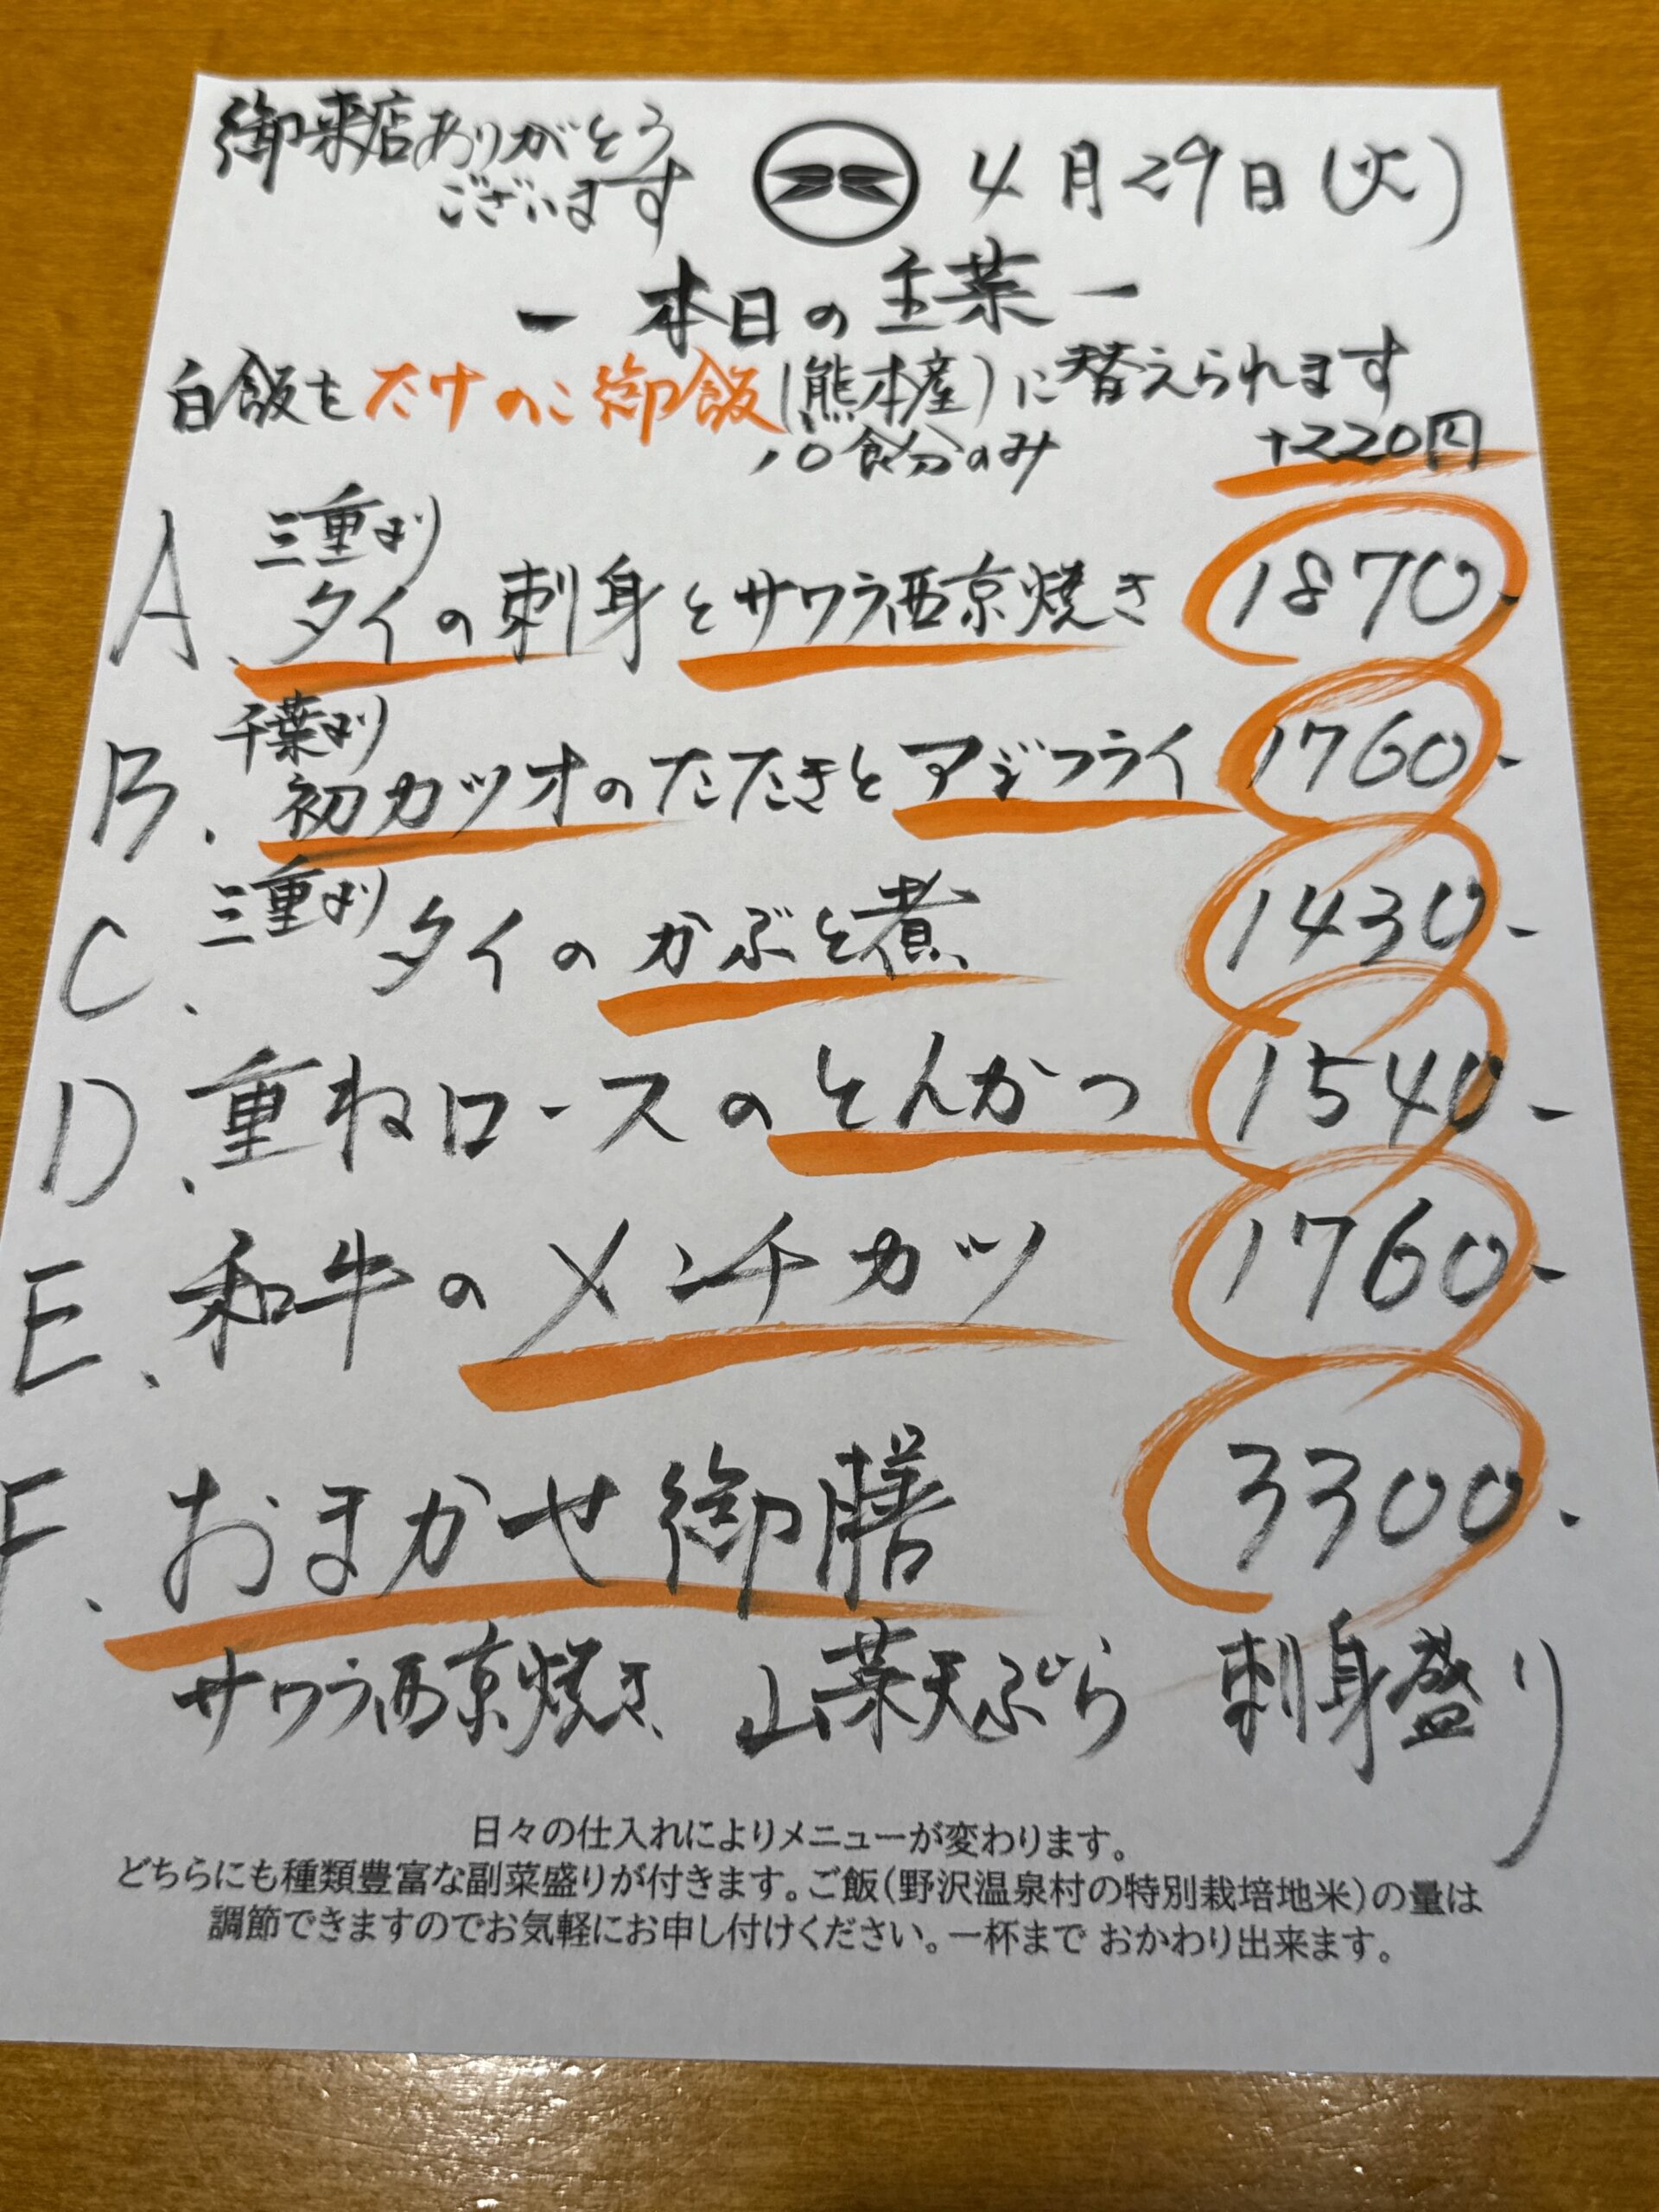 御来店ありがとう
ございます
4月29日(火)
ー本日の主菜ー
白飯をたけのこ御飯(熊本産)に替えられます
10食分のみ +220円
三重より
A. タイの刺身とサワラ西京焼き 1870-
千葉より
B. 初カツオのたたきとアジフライ 1760-
三重より
C. タイのかぶと煮 1430-
D. 重ねロースのとんかつ 1540-
E. 和牛のメンチカツ 1760-
F. おまかせ御膳 3300-
サワラ西京焼き 山菜天ぷら 刺身盛り
日々の仕入れによりメニューが変わります。
どちらにも種類豊富な副菜盛りが付きます。ご飯(野沢温泉村の特別栽培地米)の量は
調節できますのでお気軽にお申し付けください。一杯まで おかわり出来ます。